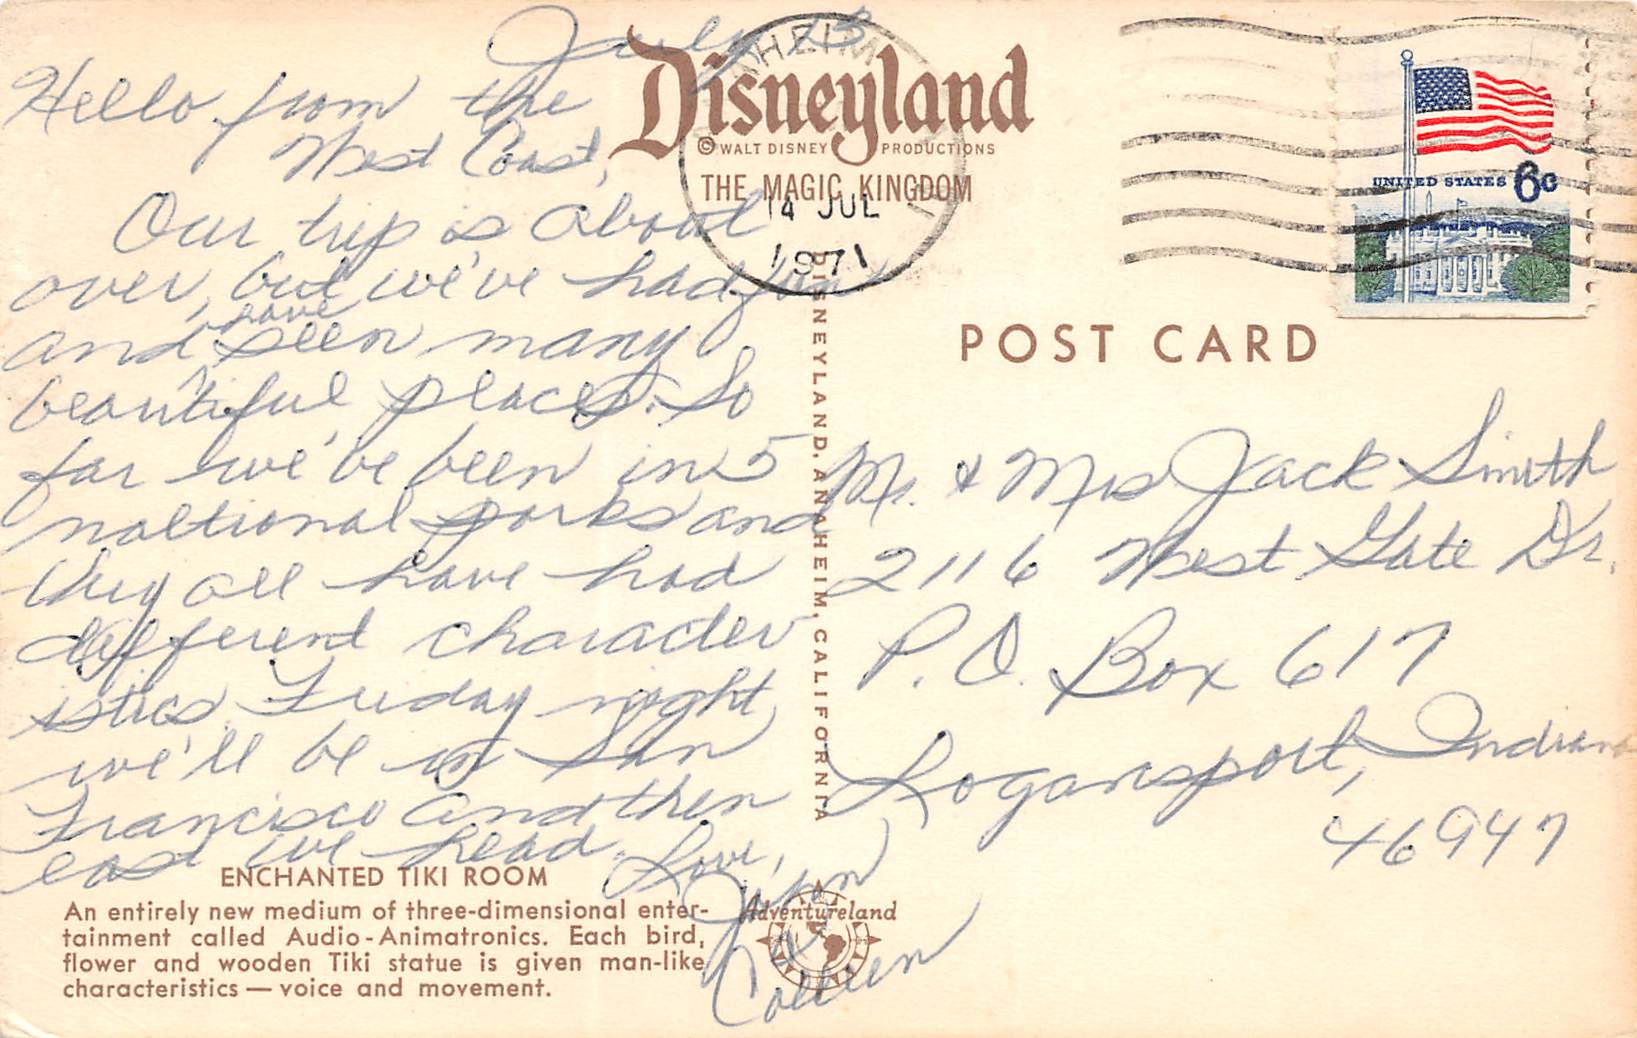 July 13
Hello from the
West Coast,
Our trip is about
over, but we've had fun
have
and seen many
beautiful places. So
far we've been in 5
naltional parks and
they all have had
different character
istics. Friday night
we'll be in San
Francisco and then
east we head.
Love,
&
Colleen
ENCHANTED TIKI ROOM
An entirely new medium of three-dimensional enter-
tainment called Audio-Animatronics. Each bird,
flower and wooden Tiki statue is given man-like
characteristics — voice and movement.
Adventureland
Disneyland
© WALT DISNEY PRODUCTIONS
THE MAGIC KINGDOM
14 JUL
1971
DISNEYLAND, ANAHEIM, CALIFORNIA
UNITED STATES 6c
POST CARD
Mr. & Mrs Jack Smith
2116 West Gate Dr.
P.O. Box 617
Logansport, Indiana
46947